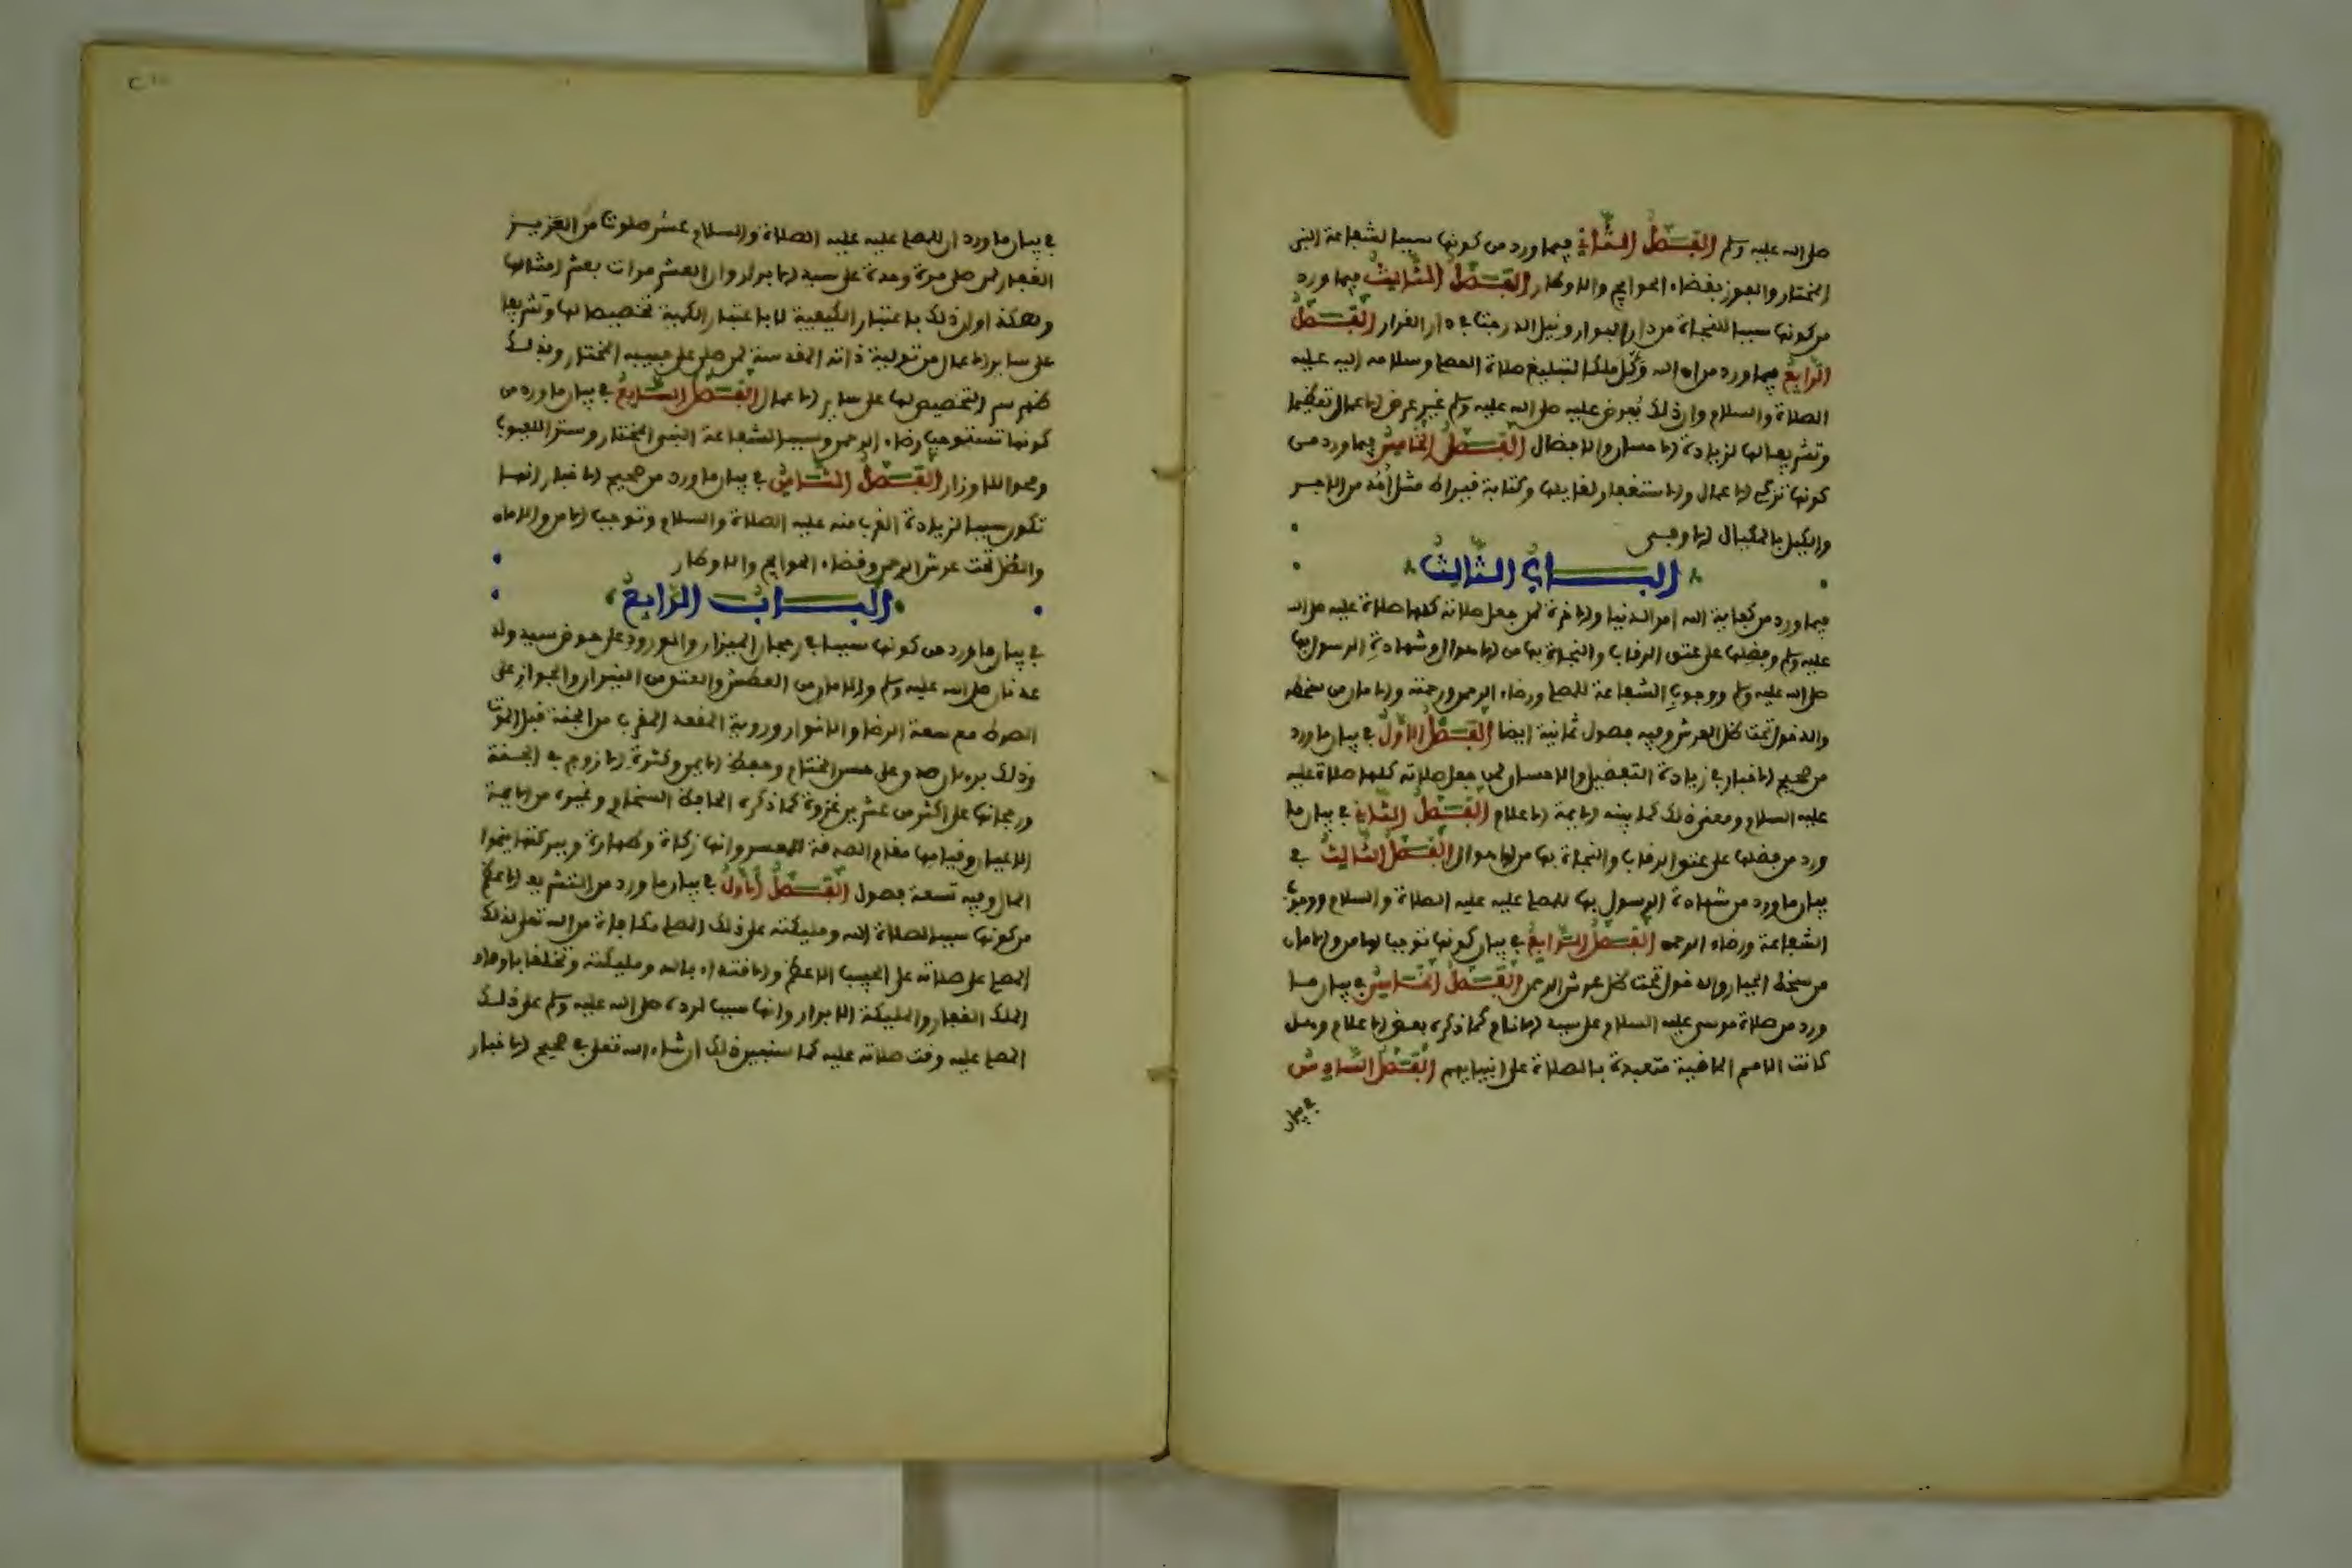 صلى الله عليه وسلم الفصل الثاني فيما ورد من كونها سببا لشفاعة النبي
المختار والفوز بقضاء الحوايج والاوطار الفصل الثالث فيما ورد
من كونها سببا للنجاة من دار البوار ونيل الدرجات في دار القرار الفصل
الرابع فيما ورد من ان الله وكل ملكا لتبليغ صلاة المصلي وسلامه اليه عليه
الصلاة والسلام وان ذلك يعرض عليه صلى الله عليه وسلم غير عرض الاعمال تعظيما
وتشريفا لها لزيادة الاحسان والافضال الفصل الخامس فيما ورد من
كونها تزكي الاعمال والاستغفار لقايلها وكتابة قيراط مثل احد من الاجر
والكيل بالمكيال الاوفى
الباب الثالث
فيما ورد من كفاية الله امر الدنيا والاخرة لمن جعل صلاته كلها صلاة عليه صلى الله
عليه وسلم وفضلها على عتق الرقاب والنجاة بها من الاهوال وشهادة الرسول بها
صلى الله عليه وسلم ووجوب الشفاعة للمصلي ورضاء الرحمن ورحمته والامان من سخطه
والدخول تحت ظل العرش وفيه فصول ثمانية ايضا الفصل الاول في بيان ما ورد
من صحيح الاخبار في زيادة التفضيل والاحسان لمن جعل صلاته كلها صلاة عليه
عليه السلام ومعنى ذلك كما بينه الايمة الاعلام الفصل الثاني في بيان ما
ورد من فضلها على عتق الرقاب والنجاة بها من الاهوال الفصل الثالث في
بيان ما ورد من شهادة الرسول بها للمصلي عليه عليه الصلاة والسلام ووجوب
الشفاعة ورضاء الرحمن الفصل الرابع في بيان كونها توجب لها من والامان
من سخط الجبار والدخول تحت ظل عرش الرحمن الفصل الخامس في بيان ما
ورد من صلاة موسى عليه السلام على سيد الانام كما ذكره بعض الاعلام وهل
كانت الامم الماضية متعبدة بالصلاة على انبيايهم الفصل السادس
في بيان
في بيان ما ورد ان للمصلي عليه عليه الصلاة والسلام عشر صلوات من العزيز
الغفار لمن صلى مرة وحدة على سيد الابرار وان العشر مرات بعشر امثالها
وهكذا وان ذلك باعتبار الكيفية لا باعتبار الكمية تخصيصا لها وتشريفا
على ساير الاعمال من تولية ذاته المقدسة لمن صلى على حبيبه المختار وبذلك
ظهر سر التخصيص لها على ساير الاعمال الفصل السابع في بيان ما ورد من
كونها تستوجب رضاء الرحمن وسببا لشفاعة النبي المختار وستر اللعيوب
ومحوا للاوزار الفصل الثامن في بيان ما ورد من صحيح الاخبار انها
تكون سببا لزيادة القرب منه عليه الصلاة والسلام وتوجب الامن والامان
والظل تحت عرش الرحمن وقضاء الحوايج والاوطار
الباب الرابع
في بيان ما ورد من كونها سببا في رجحان الميزان والورود على حوض سيد ولد
عدنان صلى الله عليه وسلم والامان من العطش والعتق من النيران والجواز على
الصراط مع سعة الرضا والانوار وروية المقعد المقرب من الجنة قبل الموت
وذلك برهان صدق على حسن الختام وحفظ الايمن وكثرة الازواج في الجنة
ورجحانها على اكثر من عشرين غزوة كما ذكره الحافظ السخاوي وغيره من الايمة
الاعيان وقيامها مقام الصدقة للمعسر وانها زكاة وطهارة وببركتها ينموا
المال وفيه تسعة فصول الفصل الاول في بيان ما ورد من التشريف الاعظم
من كونها سببا لصلاة الله ومليكته على ذلك المصلي مكافاة من الله تعالى لذلك
المصلي على صلاته على الحبيب الاعظم والاقتداء بالله ومليكته وتخلقا باوصاف
الملك الغفار والمليكة الابرار وانها سبب لرده صلى الله عليه وسلم على ذلك
المصلي عليه وقت صلاته عليه كما سنبين ذلك ان شاء الله تعالى في صحيح الاخبار